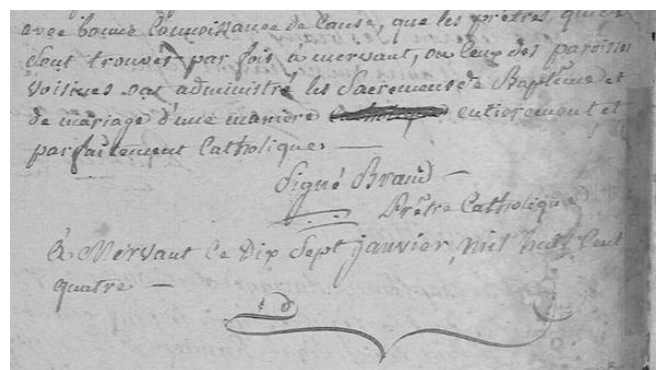 avec bonne Connoissance de Cause, que les prêtres qui
sont trouvés par fois à mervant, ou Ceux des paroisses
voisines ont administré les Sacremens de Baptême et
de mariage d'une maniere Catholique entierement et
parfaitement Catholique. —
Signé Braud —
Prêtre Catholique
à Mervant Ce Dix Sept janvier, mil huit Cent
quatre —